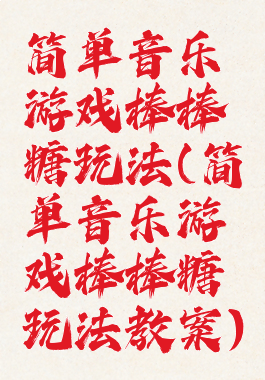 简单音乐
游戏棒棒
糖玩法(简
单音乐游
戏棒棒糖
玩法教案)